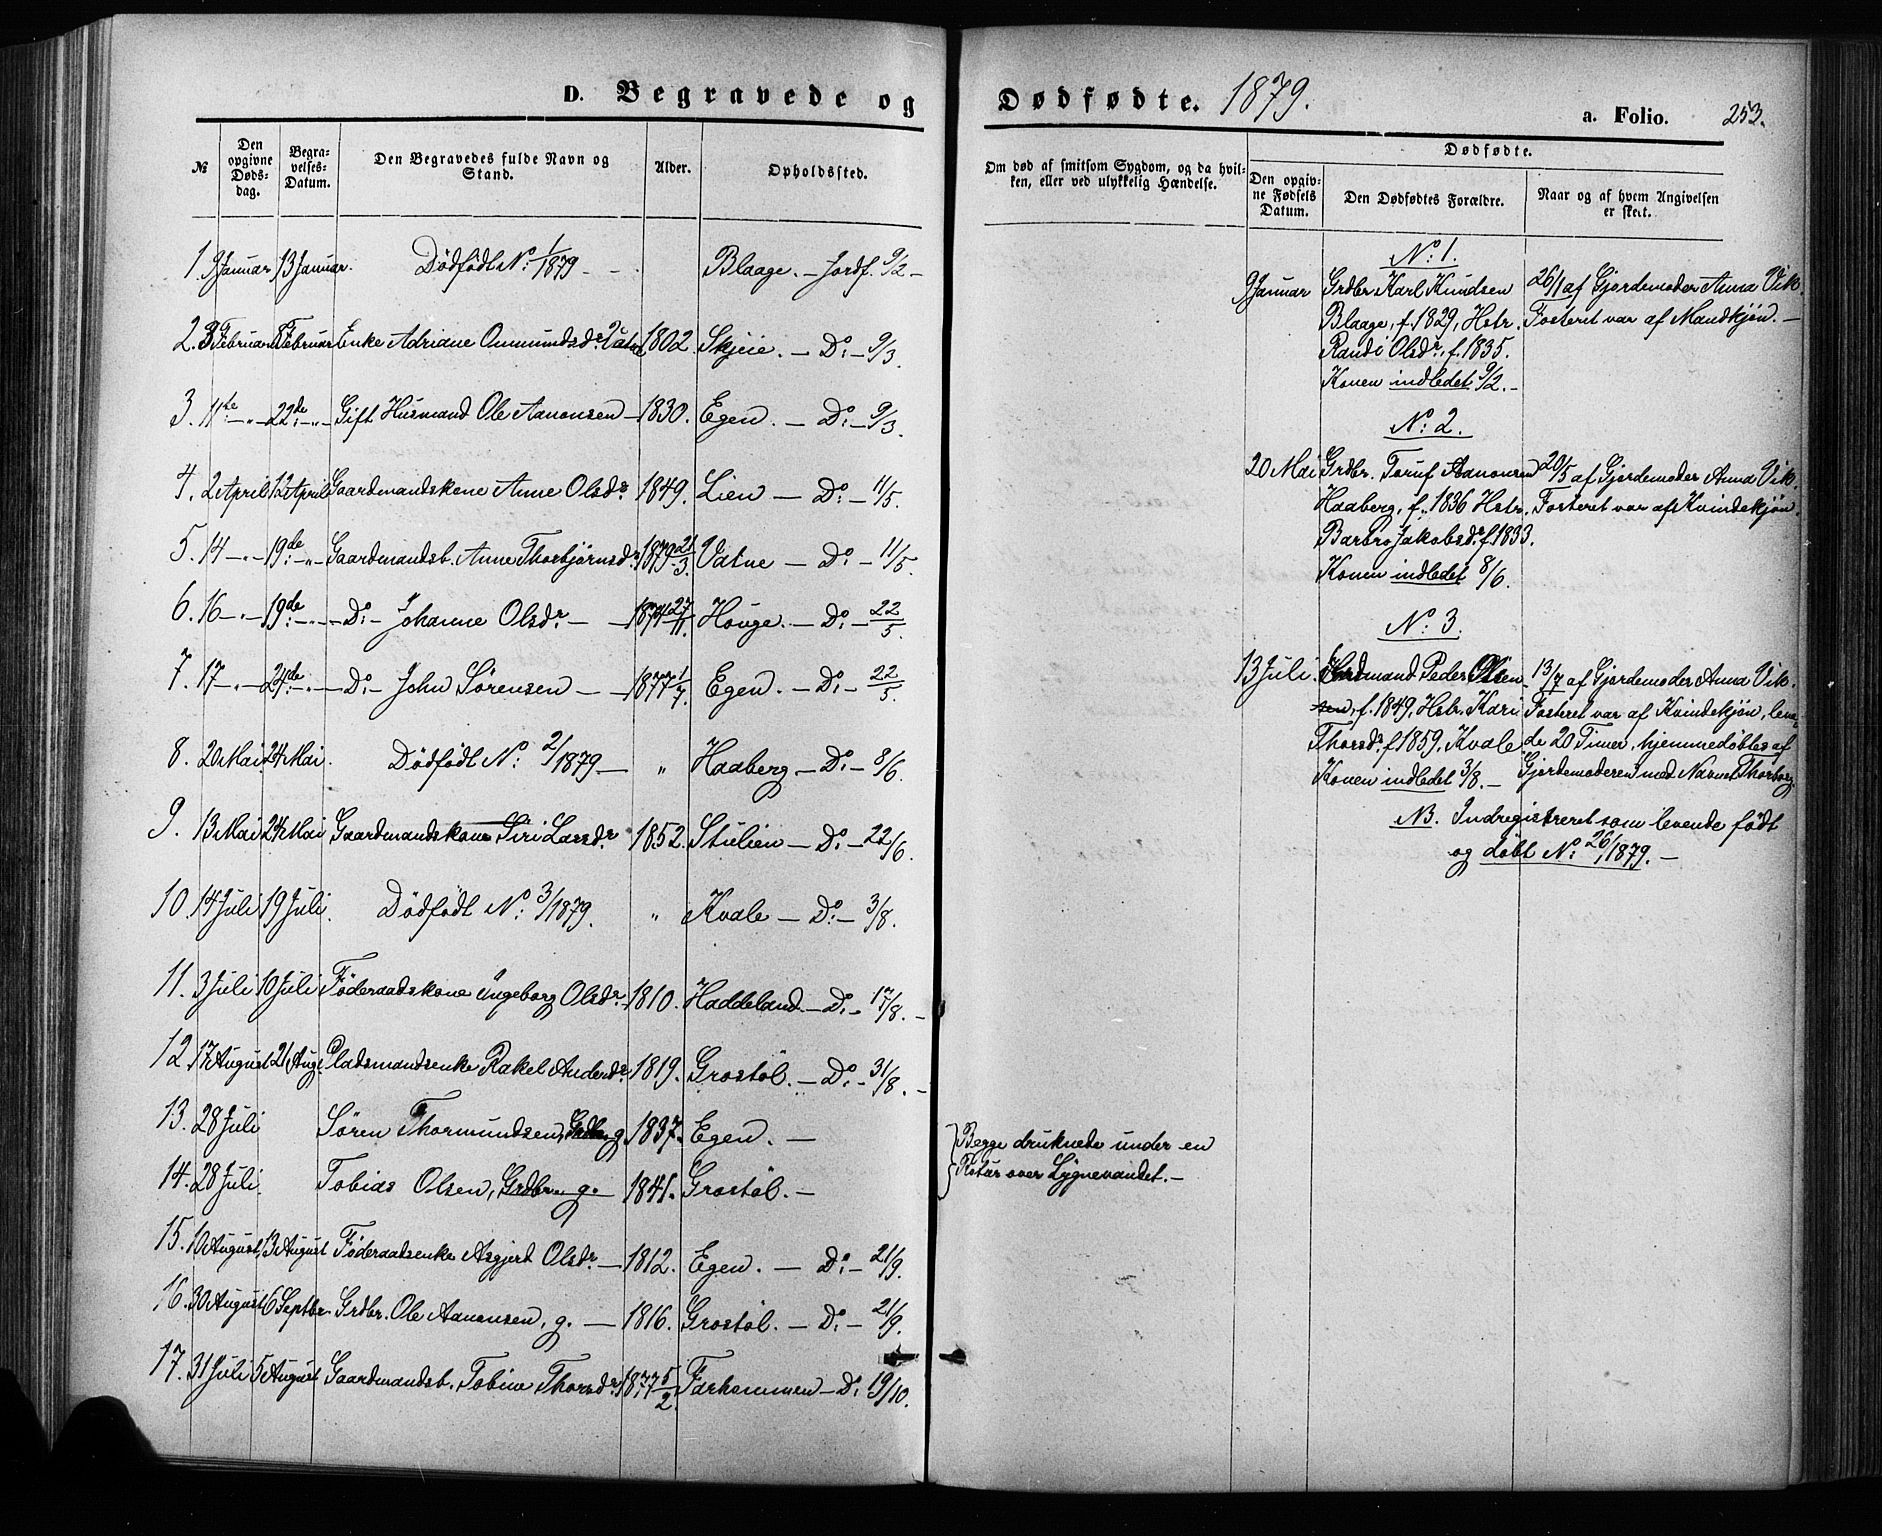 D. Begravede og
№
Den opgivne Dødsdag.
Begravelses-Datum.
Den Begravedes fulde Navn og Stand.
Alder.
Opholdssted.
1. 9 Januar 13 Januar. Dødfødt N: 1/1879 - - Blaage. - Jordf. 9/2 -
2. 3 Februar 8 Februar Enke Adriane Ommundsdr. Vatne 1802. Skjeie. - Do: - 9/3.
3. 11te - " - 22de: - " - Gift Husmand Ole Aanonsen - 1830. Egen. - Do: - 9/3.
4. 2 April 12 April Gaardmandskone Anne Olsdr. 1849. Lien - Do: - 11/5.
5. 14 - " - 19de: - " - Gaardmandsb. Anne Thorbjørnsdr. 1879 21/3. Vatne - Do: - 11/5.
6. 16 - " - 19de: - " - - Do: - Johanne Olsdr. - 1877 27/11. Houge. - Do: - 22/5.
7. 17 - " - 24de: - " - - Do: - John Sørensen - - 1877 1/7. Egen. - Do: - 22/5.
8. 20 Mai 24 Mai. Dødfødt N: 2/1879 - " Haaberg - Do: - 8/6.
9. 13 Mai 24 Mai Gaardmandskone Siri Larsdr. 1852. Stulien - Do: - 22/6.
10. 14 Juli 19 Juli. Dødfødt N: 3/1879. " Kvale - Do: - 3/8.
11. 3 Juli 10 Juli Föderaadskone Ingeborg Olsdr. 1810. Haddeland. - Do: - 17/8. -
12. 17 August 21 Aug. Pladsmandsenke Rakel Andersdr. 1819. Grostøl. - Do: - 31/8. -
13. 28 Juli Søren Thormundsen, Grdbr. g. 1837. Egen. -
14. 28 Juli. Tobias Olsen, Grdbr. g. - 1841. Grostøl. -
15. 10 August 13 August Föderaadsenke Asgjerd Olsdr. - 1812. Egen. - Do: - 21/9.
16. 30 August 6 Septbr. Grdbr. Ole Aanonsen, g. - 1816. Grostøl. - Do: - 21/9.
17. 31 Juli 5 August Gaardmandsb. Tobine Thorsdr. 1877 5/2. Farkommen - Do: 19/10.
Dødfødte. 1879.
a. Folio. 253.
Om død af smitsom Sygdom, og da hvilken, eller ved ulykkelig Hændelse.
Dødfødte.
Den opgivne Fødsels Datum.
Den Dødfødtes Forældre.
Naar og af hvem Angivelsen er skeet.
N: 1.
9 Januar Grdbr. Karl Knudsen 26/1 af Gjordemoder Anna Vik.
Blaage, f. 1829, Hstr. Fosteret var af Mandkjøn. -
Randi Olsdr., f. 1835.
Konen indledet 9/2. -
N: 2.
20 Mai Grdbr. Toruf Aanonsen 20/5 af Gjordemoder Anna Vik.
Haaberg, f. 1836 Hstr. Fosteret var af Kvindekjøn.
Barbro Jakobsdr. f. 1833.
Konen indledet 8/6.
N: 3.
13 Juli. Husmand Peder Olsen 13/7 af Gjordemoder Anna Vik.
f. 1849, Hstr. Kari Fosteret var af Kvindekjøn, leve-
Thorsdr. f. 1859, Kvale de 20 Timer, hjemmedøbtes af
Konen indledet 3/8. - Gjordemoderen med Navnet Thorborg.
NB. Indregistreret som levende født
og døbt N: 26/1879. -
Begge druknede under en
Fotur over Lygnevandet. -